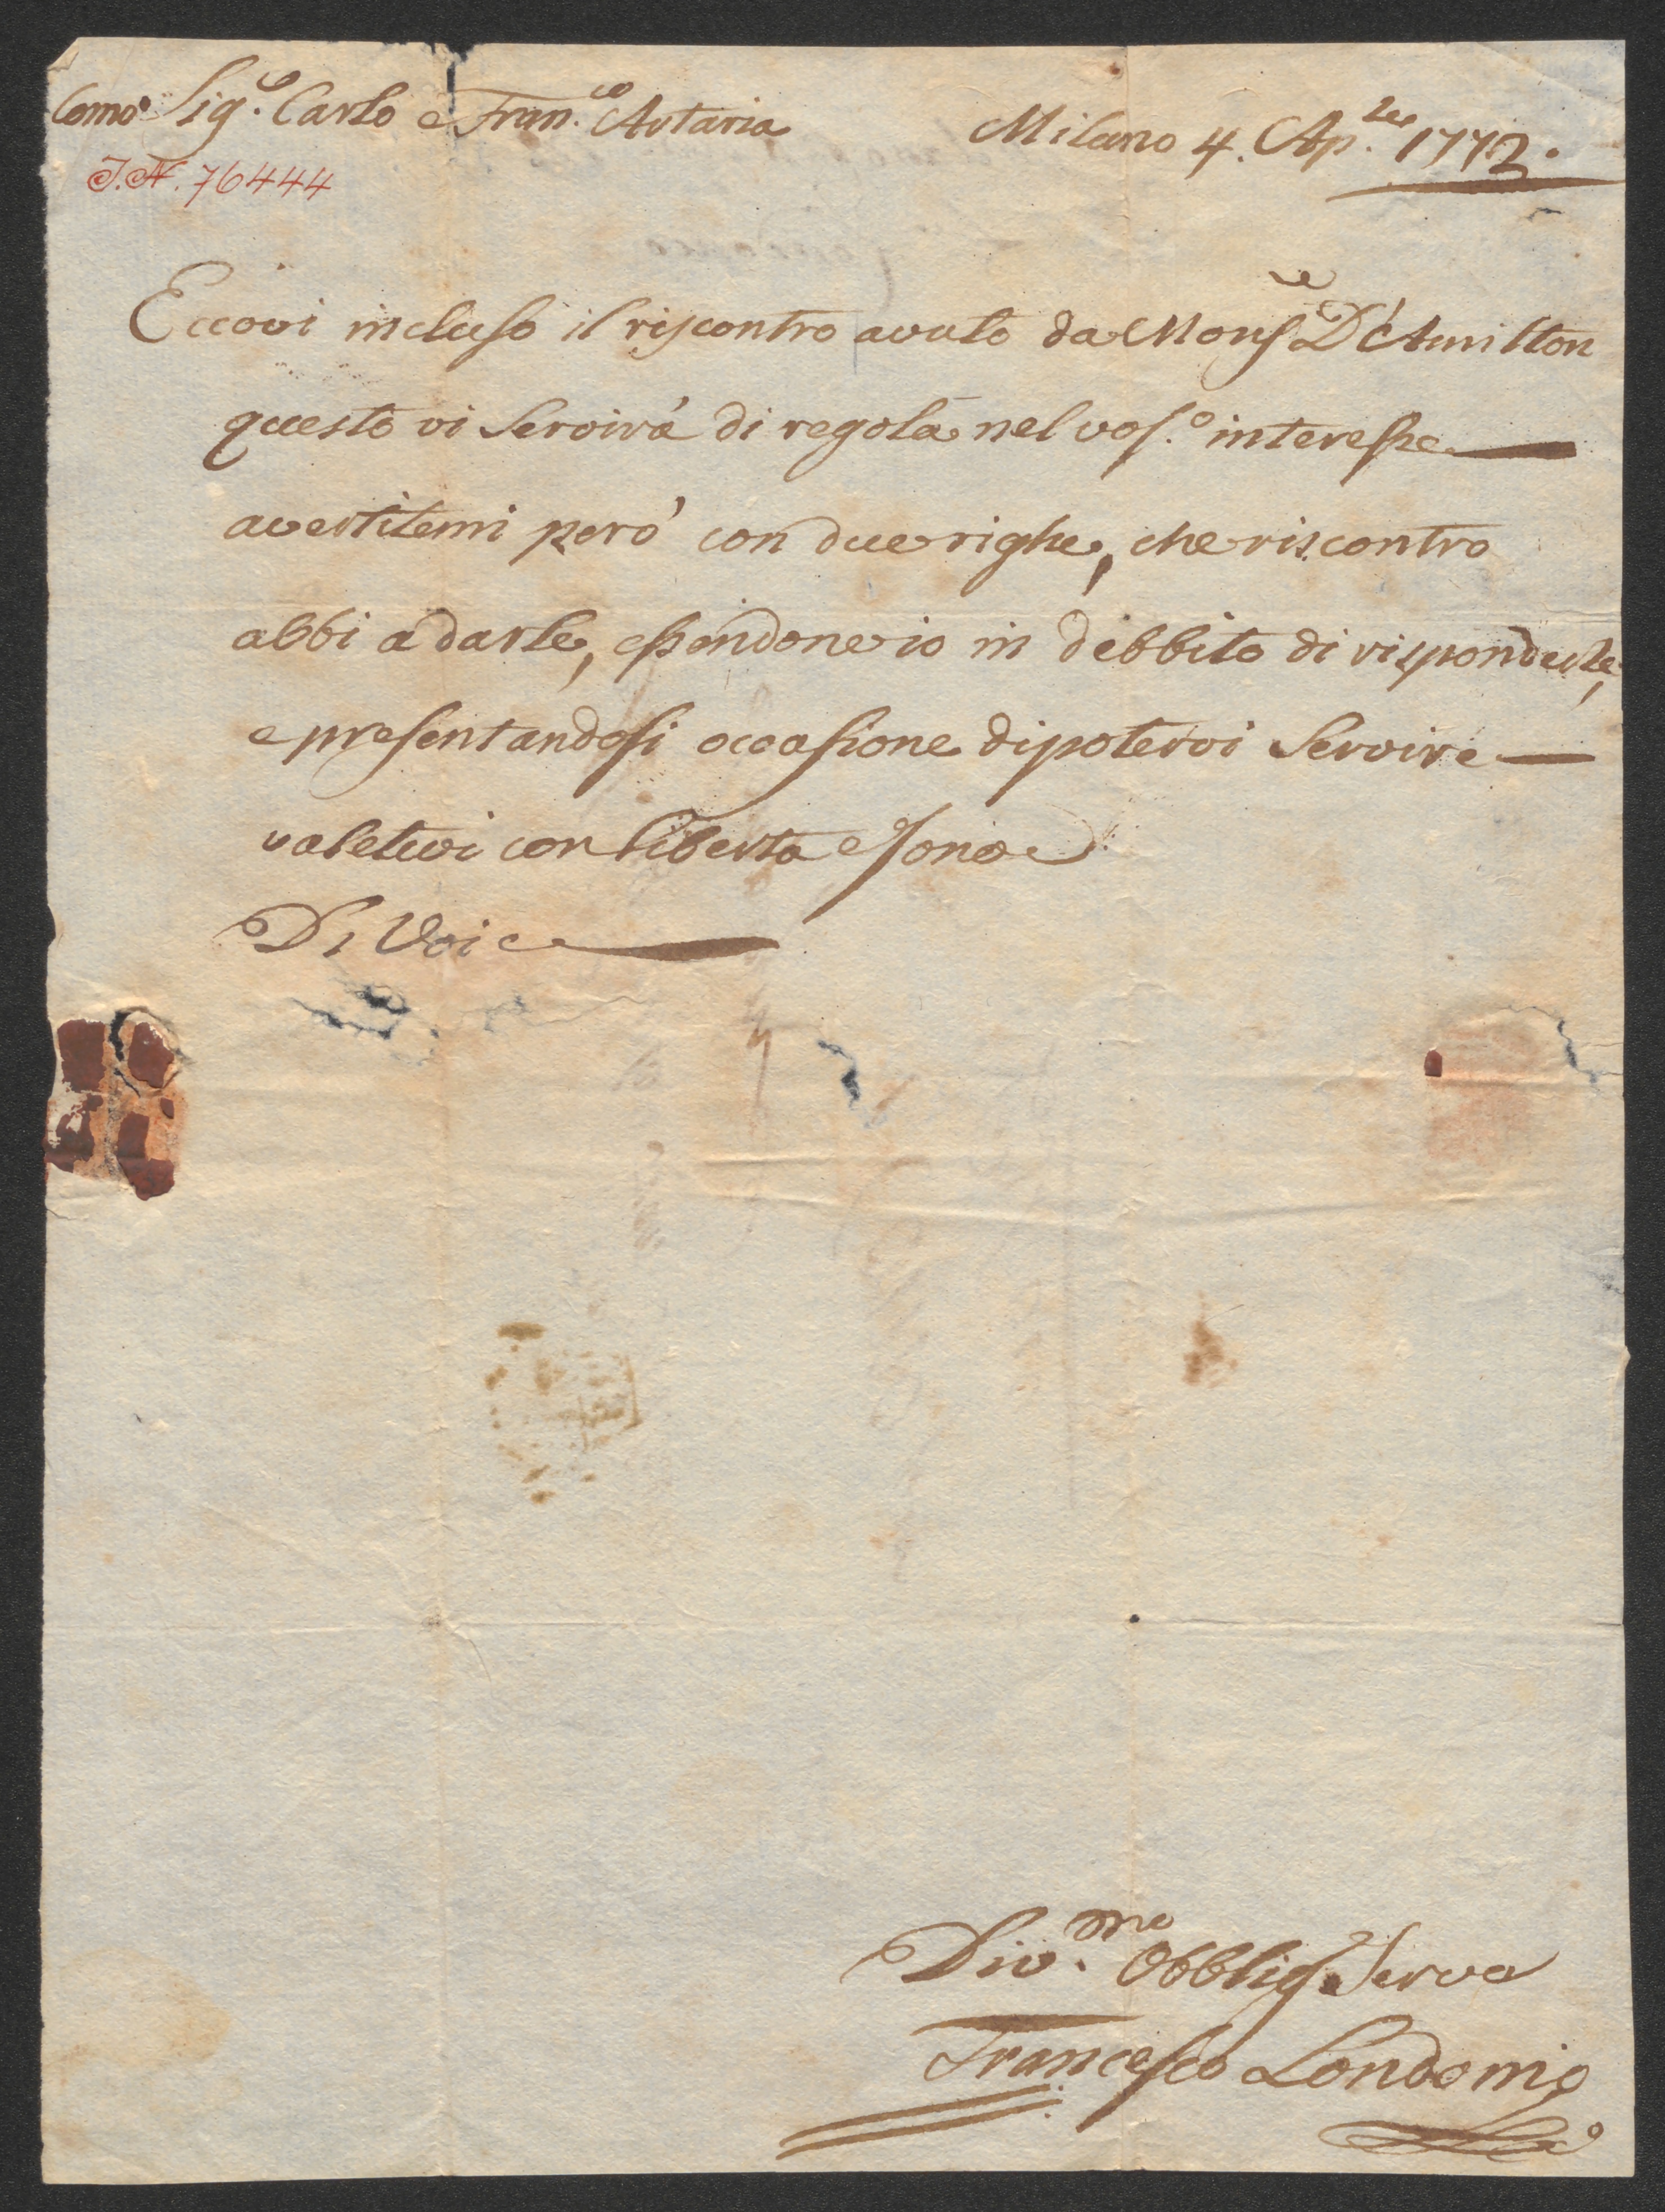 Como Sig.e Carlo e Fran.co Artaria
Milano 4. Ap.le 1772.
I.N. 76444
Eccovi incluso il riscontro avuto da Mons.e D'Amilton
questo vi servirà di regola nel vos.o interesse
avertitemi però con due righe, che riscontro
abbi à darle, essendone io in debbito di risponderle,
e presentandosi occasione di potervi servire
valetevi con libertà e sono
Di Voi
Div.mo Obblig. Servo
Francesco Londonio